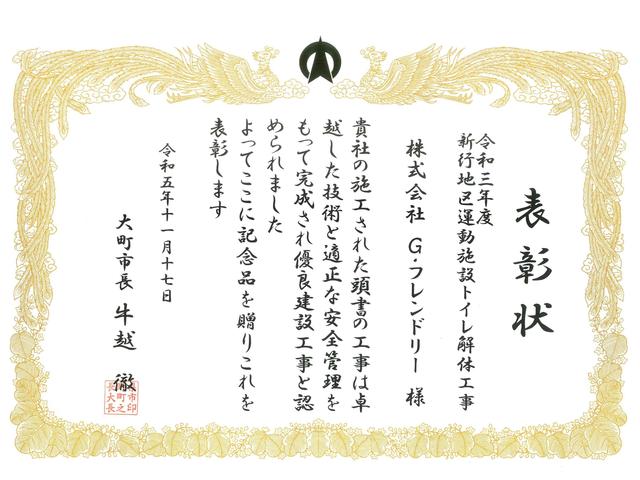 表彰状
令和三年度
新行地区運動施設トイレ解体工事
株式会社 G・フレンドリー 様
貴社の施工された頭書の工事は卓
越した技術と適正な安全管理を
もって完成され優良建設工事と認
められました
よってここに記念品を贈りこれを
表彰します
令和五年十一月十七日
大町市長 牛越 徹
市印
町之
長大長